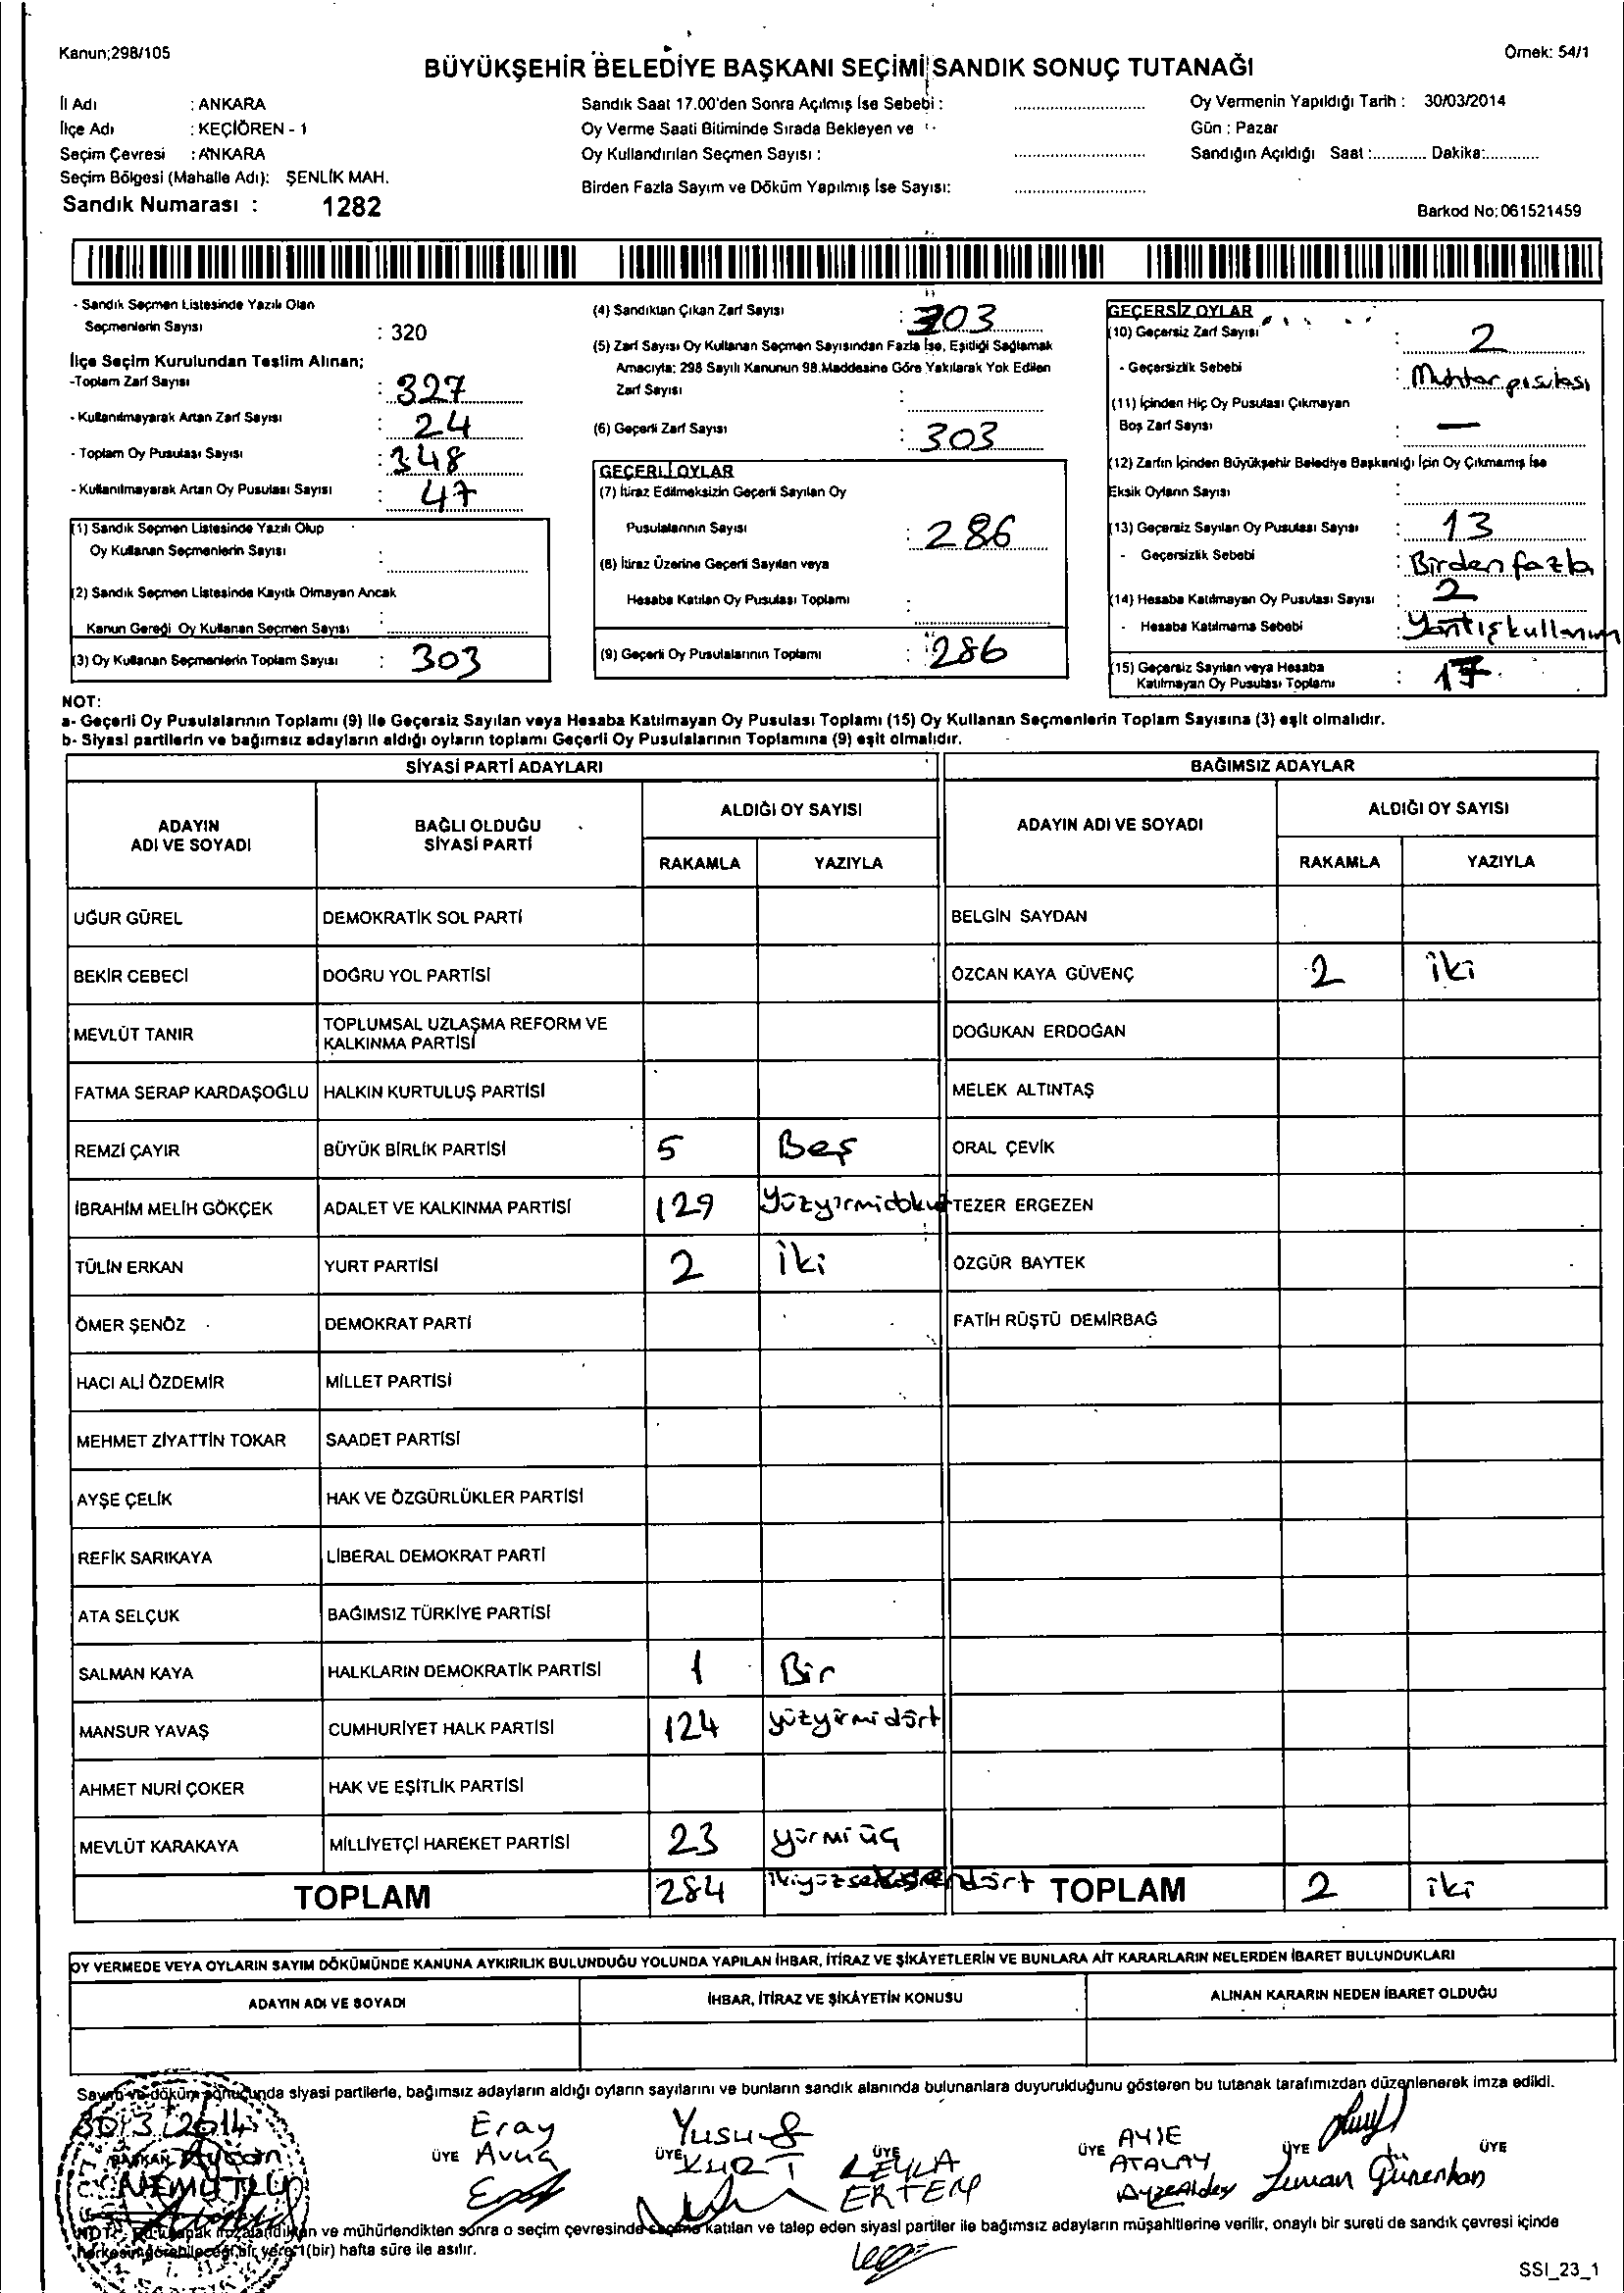 Kanun;298/105
Örnek: 54/1
BÜYÜKŞEHİR BELEDİYE BAŞKANI SEÇİMİ SANDIK SONUÇ TUTANAĞI
İl Adı : ANKARA
İlçe Adı : KEÇİÖREN - 1
Seçim Çevresi : ANKARA
Seçim Bölgesi (Mahalle Adı): ŞENLİK MAH.
Sandık Numarası : 1282
Sandık Saat 17.00'den Sonra Açılmış İse Sebebi :
Oy Verme Saati Bitiminde Sırada Bekleyen ve
Oy Kullandırılan Seçmen Sayısı :
Birden Fazla Sayım ve Döküm Yapılmış İse Sayısı:
Oy Vermenin Yapıldığı Tarih : 30/03/2014
Gün : Pazar
Sandığın Açıldığı Saat :............ Dakika:............
Barkod No: 061521459
- Sandık Seçmen Listesinde Yazılı Olan
Seçmenlerin Sayısı : 320
İlçe Seçim Kurulundan Teslim Alınan;
-Toplam Zarf Sayısı : 327
- Kullanılmayarak Artan Zarf Sayısı : 24
- Toplam Oy Pusulası Sayısı : 348
- Kullanılmayarak Artan Oy Pusulası Sayısı : 47
(1) Sandık Seçmen Listesinde Yazılı Olup
Oy Kullanan Seçmenlerin Sayısı :
(2) Sandık Seçmen Listesinde Kayıtlı Olmayan Ancak
Kanun Gereği Oy Kullanan Seçmen Sayısı :
(3) Oy Kullanan Seçmenlerin Toplam Sayısı : 303
(4) Sandıktan Çıkan Zarf Sayısı : 303
(5) Zarf Sayısı Oy Kullanan Seçmen Sayısından Fazla İse, Eşitliği Sağlamak
Amacıyla; 298 Sayılı Kanunun 98.Maddesine Göre Yakılarak Yok Edilen
Zarf Sayısı :
(6) Geçerli Zarf Sayısı : 303
GEÇERLİ OYLAR
(7) İtiraz Edilmeksizin Geçerli Sayılan Oy
Pusulalarının Sayısı : 286
(8) İtiraz Üzerine Geçerli Sayılan veya
Hesaba Katılan Oy Pusulası Toplamı :
(9) Geçerli Oy Pusulalarının Toplamı : 286
GEÇERSİZ OYLAR
(10) Geçersiz Zarf Sayısı : 2
- Geçersizlik Sebebi : Muhtar pusulası
(11) İçinden Hiç Oy Pusulası Çıkmayan
Boş Zarf Sayısı : —
(12) Zarfın İçinden Büyükşehir Belediye Başkanlığı İçin Oy Çıkmamış İse
Eksik Oyların Sayısı :
(13) Geçersiz Sayılan Oy Pusulası Sayısı : 13
- Geçersizlik Sebebi : Birden fazla
(14) Hesaba Katılmayan Oy Pusulası Sayısı : 2
- Hesaba Katılmama Sebebi : Yanlış kullanım
(15) Geçersiz Sayılan veya Hesaba
Katılmayan Oy Pusulası Toplamı : 17
NOT:
a- Geçerli Oy Pusulalarının Toplamı (9) ile Geçersiz Sayılan veya Hesaba Katılmayan Oy Pusulası Toplamı (15) Oy Kullanan Seçmenlerin Toplam Sayısına (3) eşit olmalıdır.
b- Siyasi partilerin ve bağımsız adayların aldığı oyların toplamı Geçerli Oy Pusulalarının Toplamına (9) eşit olmalıdır.
SİYASİ PARTİ ADAYLARI
BAĞIMSIZ ADAYLAR
ADAYIN ADI VE SOYADI
BAĞLI OLDUĞU SİYASİ PARTİ
ALDIĞI OY SAYISI
RAKAMLA YAZIYLA
ADAYIN ADI VE SOYADI
ALDIĞI OY SAYISI
RAKAMLA YAZIYLA
UĞUR GÜREL DEMOKRATİK SOL PARTİ BELGİN SAYDAN
BEKİR CEBECİ DOĞRU YOL PARTİSİ ÖZCAN KAYA GÜVENÇ 2 iki
MEVLÜT TANIR TOPLUMSAL UZLAŞMA REFORM VE KALKINMA PARTİSİ DOĞUKAN ERDOĞAN
FATMA SERAP KARDAŞOĞLU HALKIN KURTULUŞ PARTİSİ MELEK ALTINTAŞ
REMZİ ÇAYIR BÜYÜK BİRLİK PARTİSİ 5 Beş ORAL ÇEVİK
İBRAHİM MELİH GÖKÇEK ADALET VE KALKINMA PARTİSİ 129 yüzyirmidokuz TEZER ERGEZEN
TÜLİN ERKAN YURT PARTİSİ 2 iki ÖZGÜR BAYTEK
ÖMER ŞENÖZ DEMOKRAT PARTİ FATİH RÜŞTÜ DEMİRBAĞ
HACI ALİ ÖZDEMİR MİLLET PARTİSİ
MEHMET ZİYATTİN TOKAR SAADET PARTİSİ
AYŞE ÇELİK HAK VE ÖZGÜRLÜKLER PARTİSİ
REFİK SARIKAYA LİBERAL DEMOKRAT PARTİ
ATA SELÇUK BAĞIMSIZ TÜRKİYE PARTİSİ
SALMAN KAYA HALKLARIN DEMOKRATİK PARTİSİ 1 Bir
MANSUR YAVAŞ CUMHURİYET HALK PARTİSİ 124 yüzyirmidört
AHMET NURİ ÇOKER HAK VE EŞİTLİK PARTİSİ
MEVLÜT KARAKAYA MİLLİYETÇİ HAREKET PARTİSİ 23 yirmi üç
TOPLAM 284 ikiyüzseksendört TOPLAM 2 iki
OY VERMEDE VEYA OYLARIN SAYIM DÖKÜMÜNDE KANUNA AYKIRILIK BULUNDUĞU YOLUNDA YAPILAN İHBAR, İTİRAZ VE ŞİKÂYETLERİN VE BUNLARA AİT KARARLARIN NELERDEN İBARET BULUNDUKLARI
ADAYIN ADI VE SOYADI İHBAR, İTİRAZ VE ŞİKÂYETİN KONUSU ALINAN KARARIN NEDEN İBARET OLDUĞU
Sayım ve döküm sonucunda siyasi partilerle, bağımsız adayların aldığı oyların sayılarını ve bunların sandık alanında bulunanlara duyurulduğunu gösteren bu tutanak tarafımızdan düzenlenerek imza edildi.
30/3/2014
BAŞKAN Aycan
NEMUTLU
ÜYE Eray Avcı
ÜYE Yusuf KURT
ÜYE LEYLA ERTEM
ÜYE AYŞE ATALAY
ÜYE
ÜYE
NOT: Bu tutanak imzalandıktan ve mühürlendikten sonra o seçim çevresinde seçime katılan ve talep eden siyasi partiler ile bağımsız adayların müşahitlerine verilir, onaylı bir sureti de sandık çevresi içinde
herkesin görebileceği bir yere 1(bir) hafta süre ile asılır.
SSI_23_1